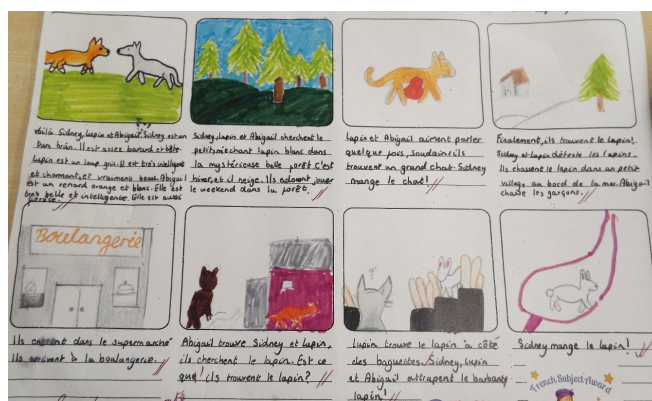 Voilà Sidney, Lupin et Abigail. Sidney est un
brun. Il est assez bavard et bête.
Lupin est un loup gris. Il est très intelligent
et charmant, et vraiment beau. Abigail
est un renard orange et blanc. Elle est
très belle et intelligente. Elle est aussi
Sidney, Lupin et Abigail cherchent le
petit méchant lapin blanc dans
la mystérieuse belle forêt. C'est
hiver, et il neige. Ils adorent jouer
le weekend dans la forêt.
Lupin et Abigail aiment parler
quelque fois, soudain ils
trouvent un grand chat. Sidney
mange le chat!
Finalement, ils trouvent le lapin!
Sidney et Lupin déteste les lapins.
Ils chassent le lapin dans un petit
village au bord de la mer. Abigail
chasse les garçons.
Boulangerie
Ils entrent dans le supermarché
Ils arrivent à la boulangerie.
Abigail trouve Sidney et Lupin,
ils cherchent le lapin. Est ce
que ils trouvent le lapin?
Lupin trouve le lapin à côté
des baguettes. Sidney, Lupin
et Abigail attrapent le
lapin!
Sidney mange le lapin!
French Subject Award